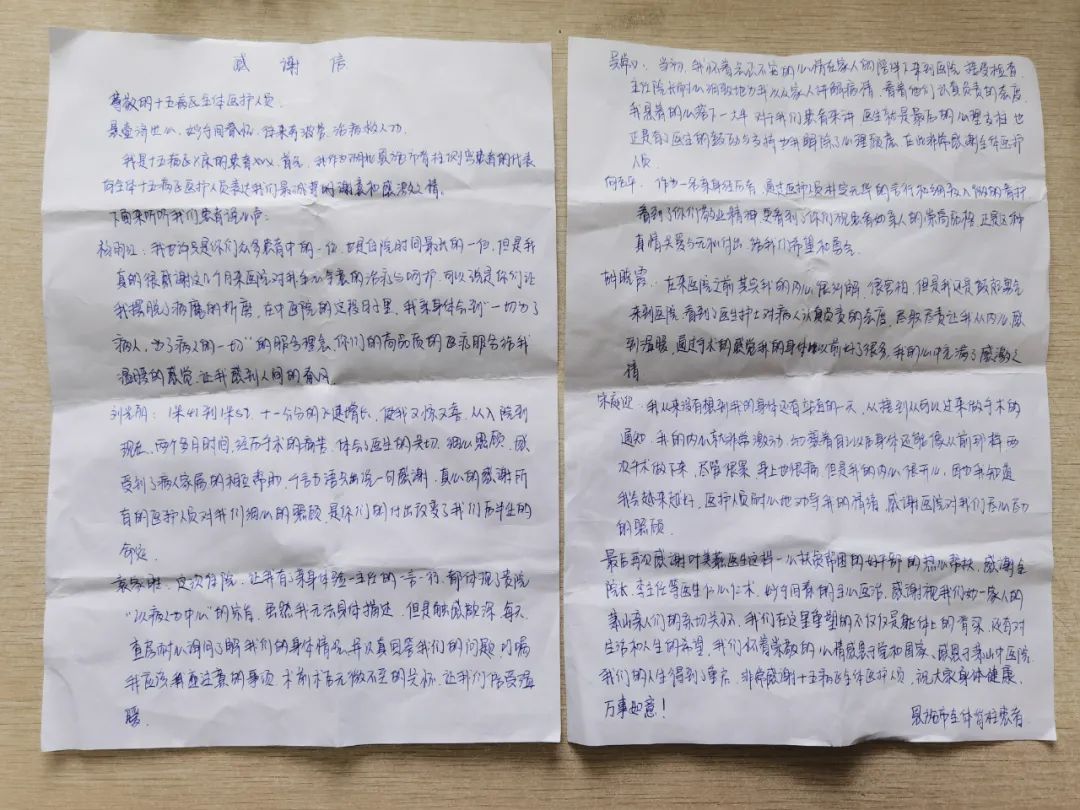 感 谢 信
尊敬的十五病区全体医护人员:
悬壶济世心,妙手回春怀,待来有波啻,治病救人功.
我是十五病区X床的患者XXX.首先,我作为湖北恩施市脊柱侧弯患者的代表
向全体十五病区医护人员表达我们最诚挚的谢意和感激之情.
下面来听听我们患者得心声:
杨雨江:我也许只是你们众多患者中的一位,也是住院时间最长的一位,但是我
真的很感谢这几个月来医院对我全心全意的治疗与呵护,可以说是你们让
我摆脱了病魔的折磨,在中医院的这段日子里,我亲身体会到"一切为了
病人,为了病人的一切"的服务理念,你们的高品质的医疗服务给我
温暖的感觉,让我感到人间的春风.
刘 :1米41到1米52,十一公分的迅速增长,使我又惊又喜,从入院到
现在,两个多月时间,经历手术的痛苦,体会了医生的亲切,细心照顾,感
受到了病人家属的相互帮助,千言万语先由说一句感谢,真心的感谢所
有的医护人员对我们细心的照顾,是你们的付出改变了我们后半生的
命运.
袁家雎:这次住院,让我有了亲身体验,主任的一言一行,都体现了贵院
"以病人为中心"的宗旨,虽然我无法具体描述,但是触感颇深,每天
查房耐心询问了解我们的身体情况,并认真回答我们的问题,叮嘱
我应该我应注意的事项,术前术后无微不至的关怀,让我们倍受温
暖.
吴 :当初,我怀着忐忑不安的心情在家人的陪伴下来到医院,接受检查,
主任院长耐心细致地为我以及家人讲解病情,看着他们认真负责的态度,
我悬着的心落下一大半,对于我们患者来讲,医生就是最后的心理支柱,也
正是有了医生的鼓励与支持,也我解除了心理顾虑,在此非常感谢全体医护
人员.
向 :作为一名亲身经历者,通过医护人员朴实无华的言行和细致入微的看护
看到了你们敬业精神,更看到了你们视患者为亲人的崇高品格,正是这种
真情关爱与无私付出,给我们希望和勇气.
胡晓霞:在来医院之前其实我的内心很纠结,很害怕,但是我还是鼓起勇气
来到医院,看到了医生护士对病人认真负责的态度,尽职尽责让我从内心感
到温暖,通过手术的感觉我的身体比以前好了很多,我的心中充满了感激之
情
宋庭迎:我从来没有想到我的身体还有笔直的一天,从接到从可以过来做手术的
通知,我的内心就非常激动,幻想着自己以后身体还能像从前那样,两
次手术做下来,尽管很累,身上也很痛,但是我的内心很开心,因为我知道
我会越来越好,医护人员耐心地劝导我的情绪,感谢医院对我们无微不至
的照顾.
最后再次感谢叶 医生这样一心扶贫帮困的好干部的热心帮扶,感谢金
院长,李主任等医生仁心仁术,妙手回春的主心医治,感谢视我们如一家人的
萧山亲人们的亲切关怀,我们在这里重塑的不仅仅是躯体上的脊梁,还有对
生活和人生的希望,我们怀着崇敬的心情感恩于党和国家,感恩于萧山中医院,
我们的人生得到了重启,非常感谢十五病区全体医护人员,祝大家身体健康,
万事如意!
恩施市全体脊柱患者.